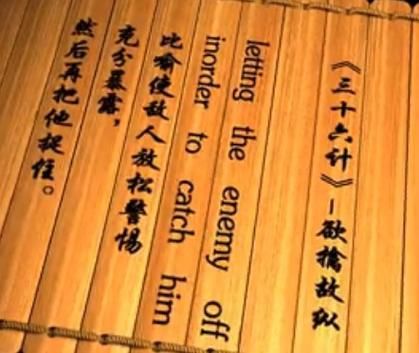 《三十六计》—欲擒故纵
letting the enemy off
inorder to catch him
比喻使敌人放松警惕
充分暴露，
然后再把他捉住。